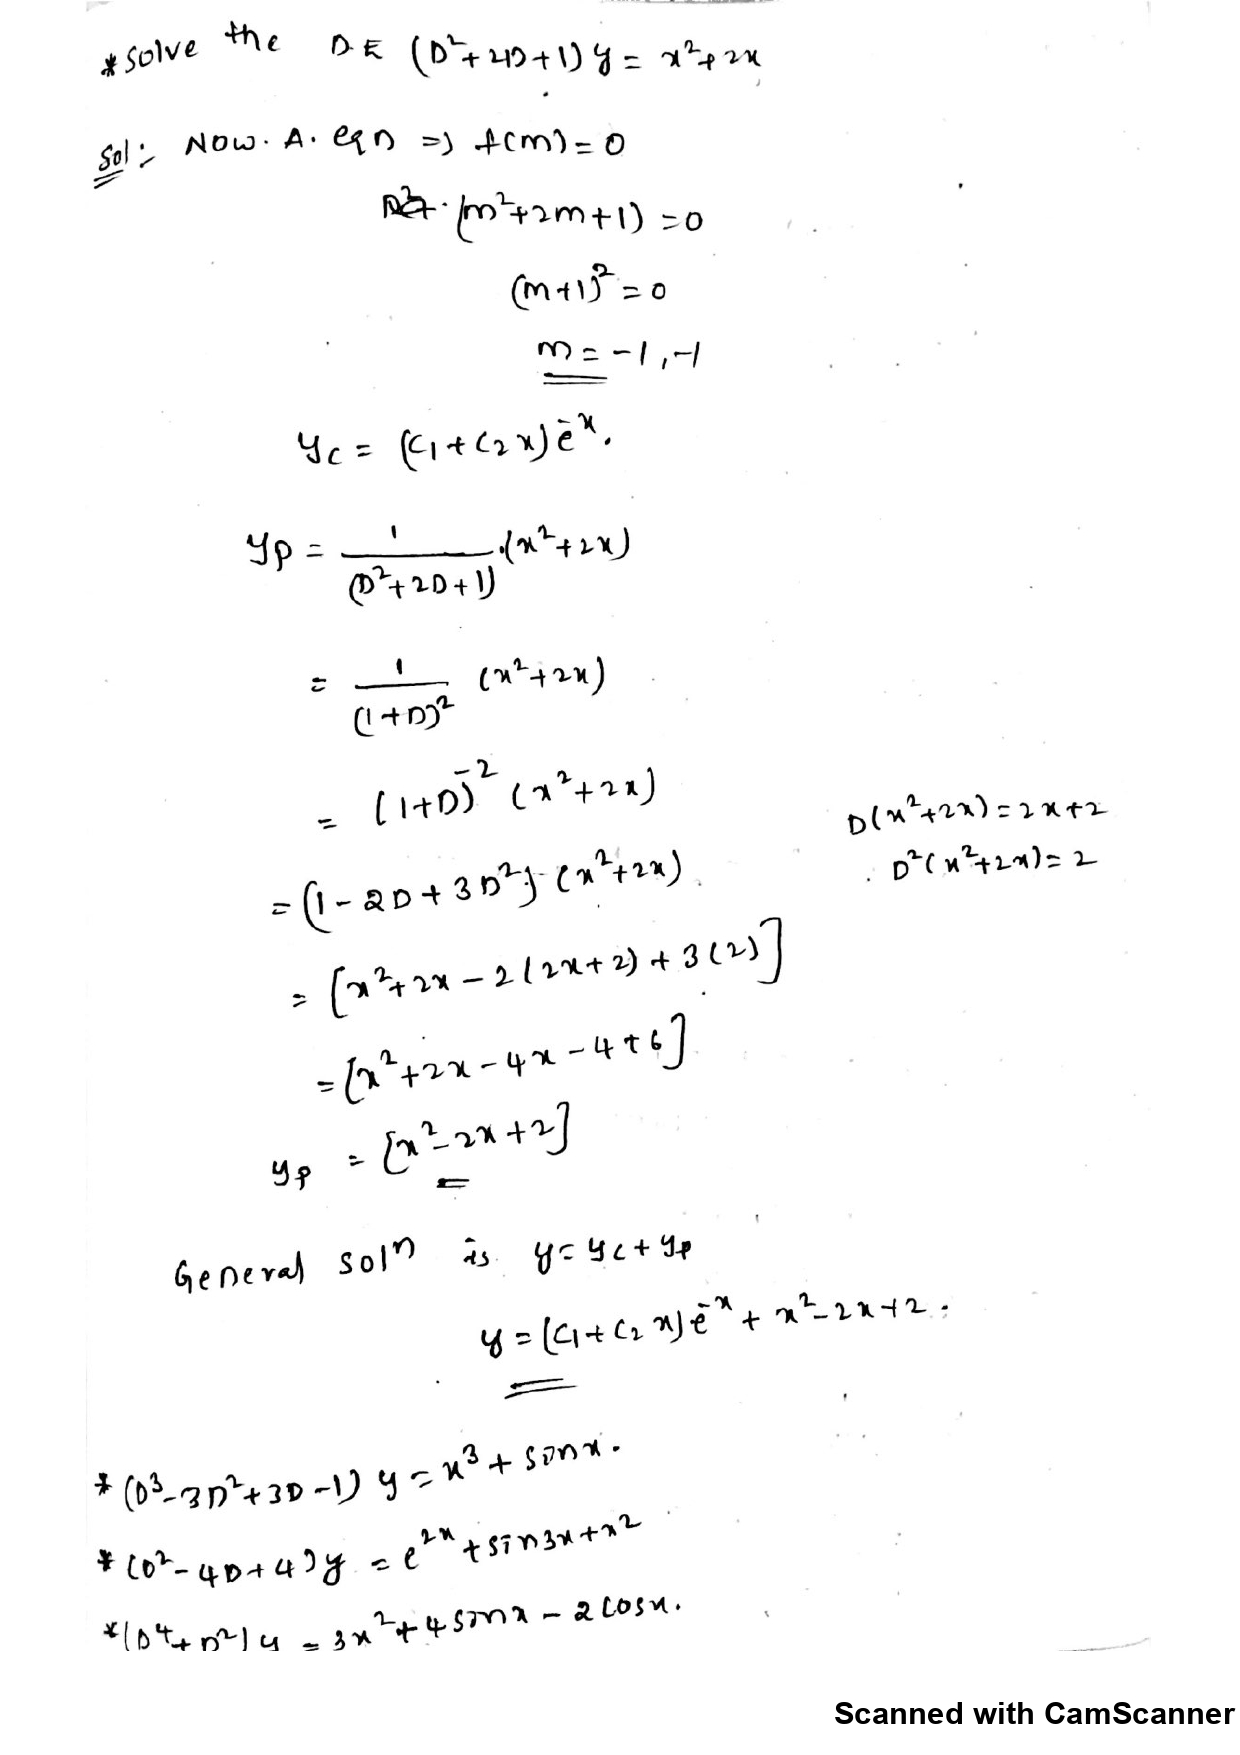 * Solve the DE (D²+2D+1)y = x²+2x
Sol:- Now. A. eqn => f(m)=0
(m²+2m+1) =0
(m+1)² = 0
m = -1, -1
y_c = (c₁+c₂x)e⁻ˣ.
y_p = 1/(D²+2D+1) .(x²+2x)
= 1/(1+D)² (x²+2x)
= (1+D)⁻² (x²+2x)
D(x²+2x) = 2x+2
D²(x²+2x) = 2
= (1-2D+3D²) (x²+2x)
= [x²+2x-2(2x+2)+3(2)]
= [x²+2x-4x-4+6]
y_p = [x²-2x+2]
General solⁿ is y = y_c + y_p
y = (c₁+c₂x)e⁻ˣ + x²-2x+2.
* (D³-3D²+3D-1) y = x³ + sinx.
* (D²-4D+4)y = e²ˣ + sin3x + x²
* (D⁴+D²)y = 3x²+4sinx - 2cosx.
Scanned with CamScanner